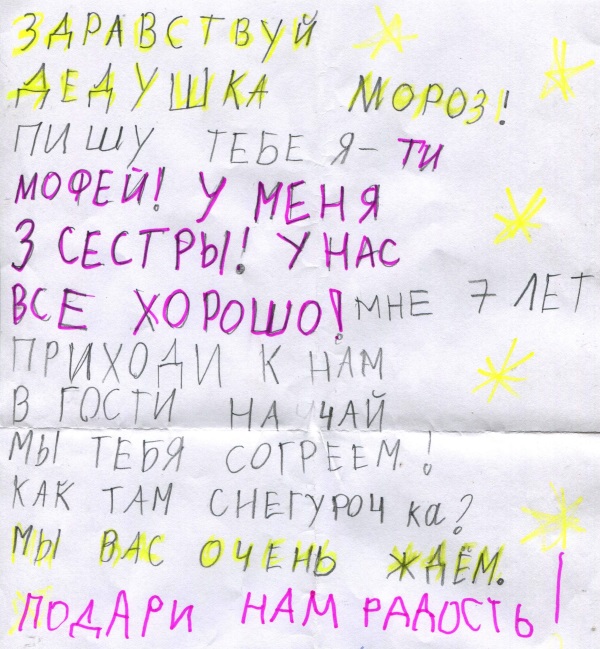 ЗДРАВСТВУЙ
ДЕДУШКА МОРОЗ!
ПИШУ ТЕБЕ Я - ТИ
МОФЕЙ! У МЕНЯ
3 СЕСТРЫ! У НАС
ВСЕ ХОРОШО! МНЕ 7 ЛЕТ
ПРИХОДИ К НАМ
В ГОСТИ НА ЧАЙ
МЫ ТЕБЯ СОГРЕЕМ.!
КАК ТАМ СНЕГУРОЧ ка?
МЫ ВАС ОЧЕНЬ ЖДЁМ.
ПОДАРИ НАМ РАДОСТЬ!